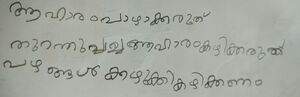 ആഹാരംപാഴാക്കരുത്
തുറന്നുവച്ചആഹാരംകഴിക്കരുത്
പഴങ്ങൾ കഴുകികഴിക്കണം